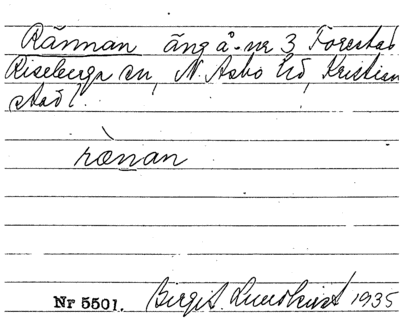 Rännan äng å nr 3 Forestad
Riseberga sn, N. Åsbo hd, Kristian
stad l.
rænan
Nr 5501. Birgit Lundkvist 1935